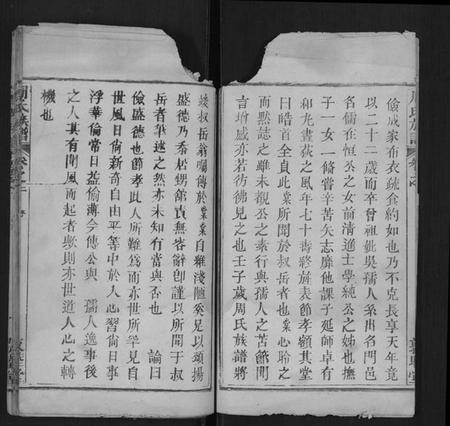 儉成家布衣疏食約如也乃不克長享天年竟
以二十二歲而卒曾祖妣吳孺人系出名門邑
名儒在恒公之女前清進士學純公之姊也撫
子一女一備嘗辛苦矢志靡他課子延師卓有
和光畫荻之風年七十壽終旌表節孝額其堂
曰皓首全貞此某所聞於叔岳者也某心聆之
而默誌之雖未親公之素行與孺人之苦節間
言增感亦若彷彿見之也壬子歲周氏族譜將
竣叔岳翁囑傳於某某自維淺陋奚足以頌揚
盛德乃忝居甥館責無容辭卽謹以所聞于叔
岳者筆述之然亦未知有當與否也　論曰
儉盛德也節孝此人所難爲而亦世所罕見自
世風日尙新奇自由平等中於人心習倘日事
浮華倫常日益偷薄今傳公與　孺人逸事後
之人其有聞風而起者歟則亦世道人心之轉
機也
周氏族譜